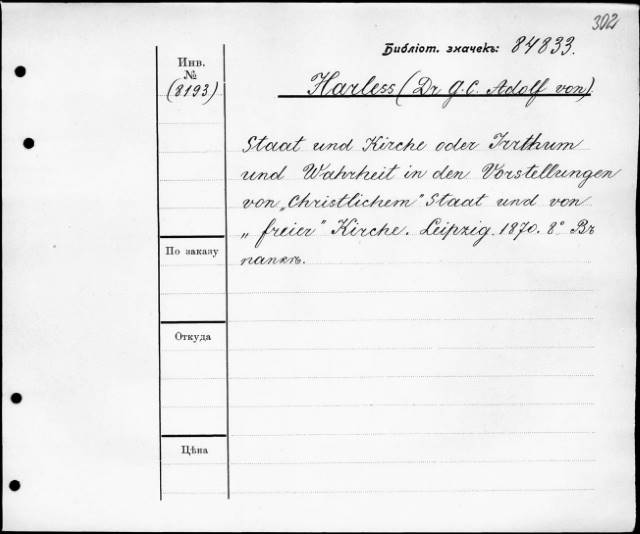 302
Библіот. значекъ: 84833.
Инв.
№
(8193)
Harless (Dr G. C. Adolf von).
Staat und Kirche oder Irrthum
und Wahrheit in den Vorstellungen
von „Christlichem" Staat und von
„freier" Kirche. Leipzig. 1870. 8° Въ
папкѣ.
По заказу
Откуда
Цѣна